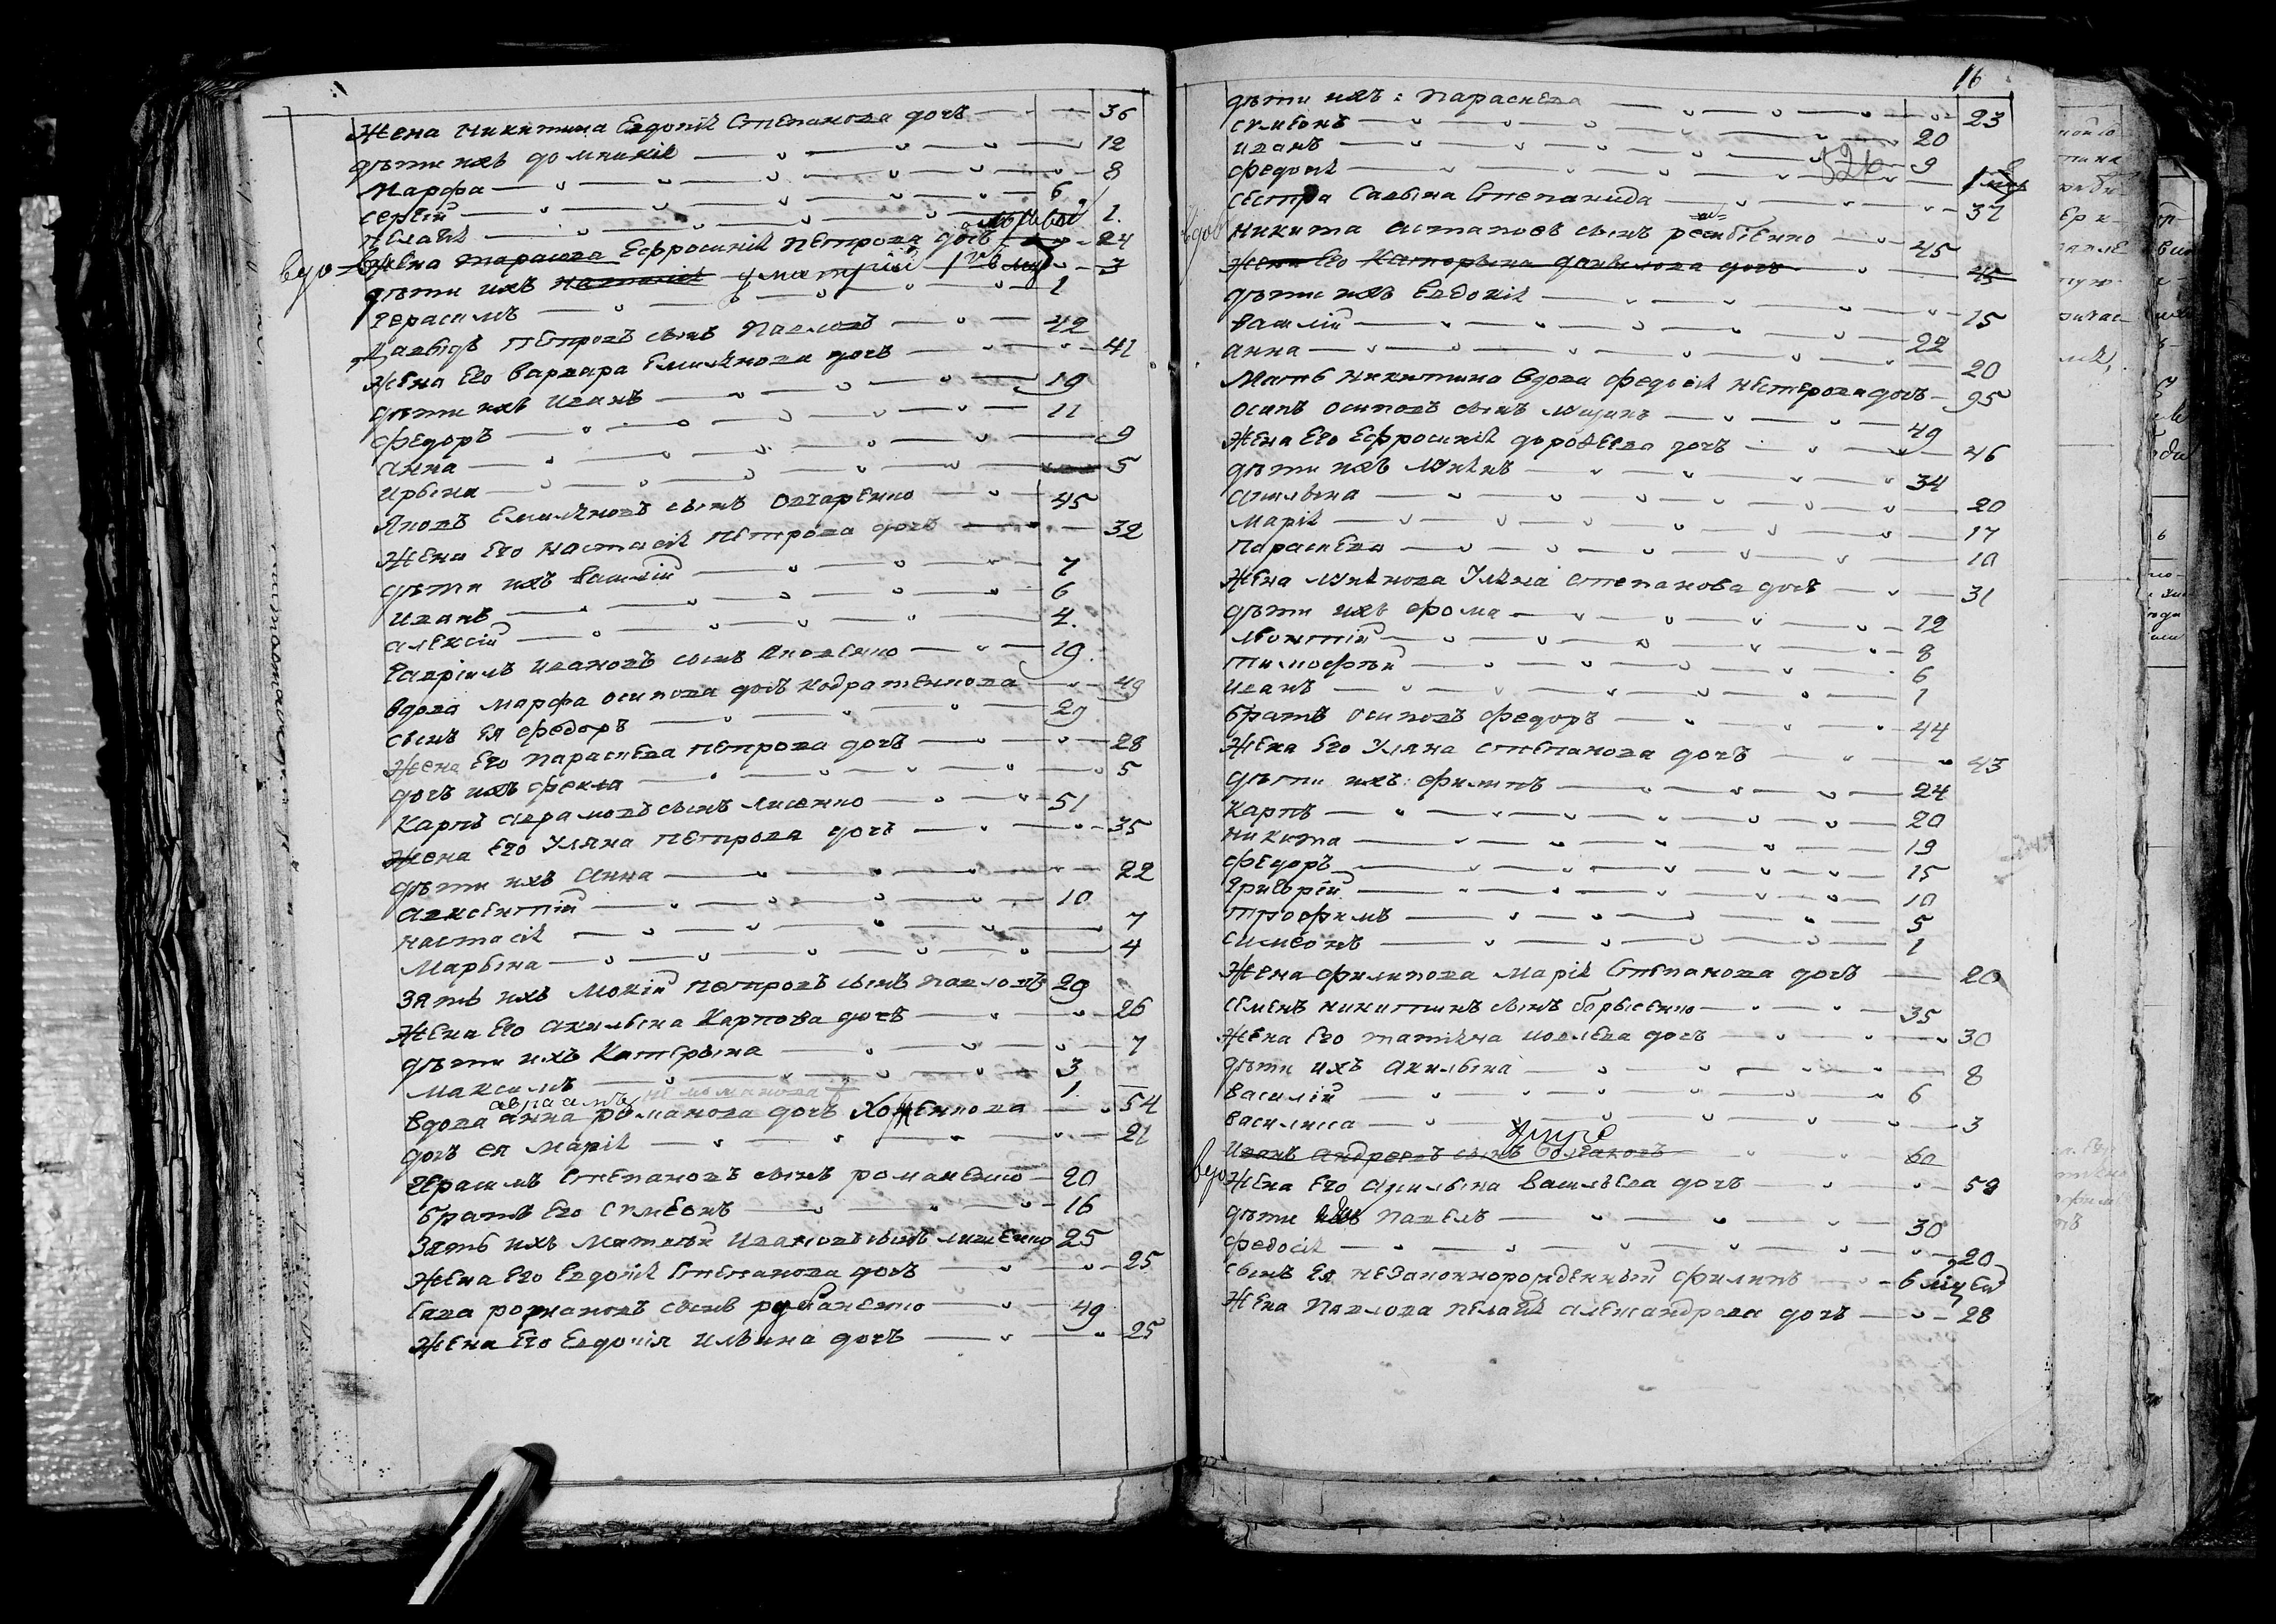 Жена Никитина Евдокія Степанова дочь 36
дѣти ихъ домникія 12
Марфа 8
сергій 6
пелагія 1
вдо Жена Тарасова Ефросинія Петрова дочь 24
дѣти ихъ дмитрій 3
герасимъ 1
давыдъ петровъ сынъ Павловъ 42
жена его варвара Емильянова дочь 41
дѣти ихъ иванъ 19
федоръ 11
анна 9
ирьина 5
Яковъ Емильяновъ сынъ Овчаренко 45
Жена его настасія Петрова дочь 32
дѣти ихъ василій 7
иванъ 6
алексій 4
гавріилъ ивановъ сынъ яковенко 19
вдова марфа осипова дочь кодратенкова 49
сынъ ея федоръ 29
Жена его параскева петрова дочь 28
дочь ихъ фекла 5
карпъ аврамовъ сынъ лисенко 51
Жена его Уляна петрова дочь 35
дѣти ихъ анна 22
авксентій 10
настасія 7
Марьина 4
Зять ихъ мокій петровъ сынъ павловъ 29
Жена его акильина Карпова дочь 26
дѣти ихъ Катерьина 7
максимъ 3
авраамъ 1
вдова анна романова дочь 54
дочь ея марія 21
герасимъ Степановъ сынъ романенко 20
братъ его сѵмеонъ 16
Зять ихъ матвѣй ивановъ сынъ 25
жена его Евдокія Степанова дочь 25
сава романовъ сынъ 49
Жена его Евдокія ильина дочь 25
16
дѣти ихъ: параскева 23
сѵмеонъ 20
иванъ 9
федосія 1
326
сестра савьина Степанида 37
вдов никита астаповъ сынъ 45
Жена его Катерьина данилова дочь 45
дѣти ихъ Евдокія 15
василій 22
анна 20
Мать никитина вдова федосія нестерова дочь 95
осипъ осиповъ сынъ 49
Жена его Ефросинія дорофеева дочь 46
дѣти ихъ 34
акильина 20
марія 17
параскева 10
жена Уляна степанова дочь 31
дѣти ихъ фома 12
леонтій 8
тимофѣй 6
иванъ 1
братъ осиповъ федоръ 44
жена его Уляна степанова дочь 43
дѣти ихъ: филипъ 24
карпъ 20
никита 19
федоръ 15
григорій 10
трофимъ 5
симеонъ 1
Жена филипова марія Степанова дочь 20
семенъ никитинъ сынъ борьисенко 35
жена его татіяна иовлева дочь 30
дѣти ихъ акильина 8
василій 6
василиса 3
Иванъ андреевъ сынъ 60
вдо жена его акильина васильева дочь 58
дѣти павелъ 30
федосія 20
сынъ ея незаконнорожденный филипъ 6
жена павлова пелагія александрова дочь 28